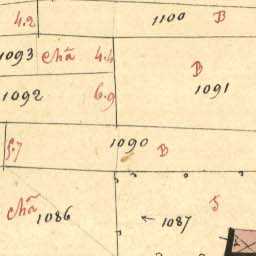 4.2 1100 B
1093 chã 4.4
B
1092 6.9 1091
1090 B
5.7
chã 1086
5
1087